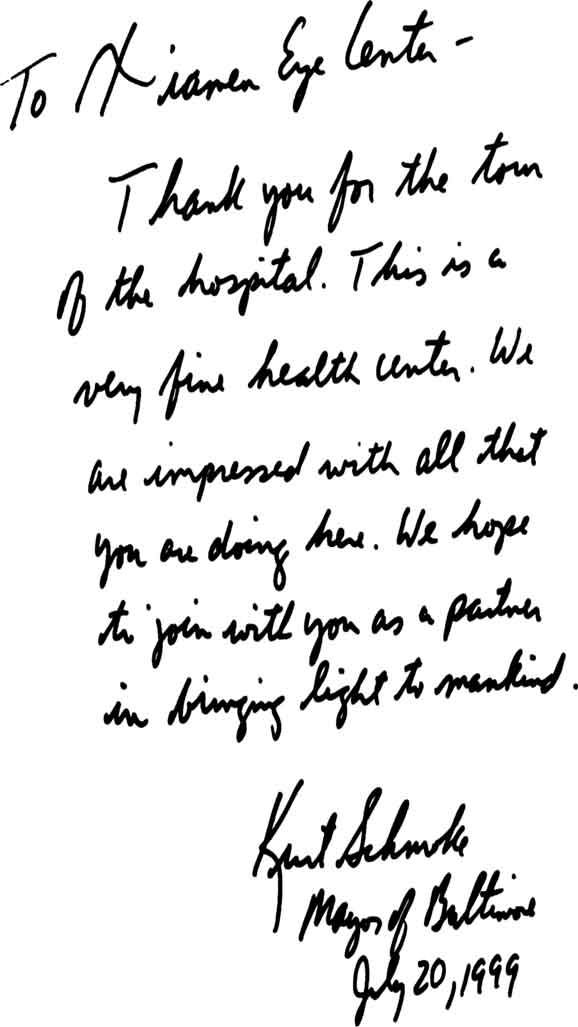 To Xiamen Eye Center -
Thank you for the tour
of the hospital. This is a
very fine health center. We
are impressed with all that
you are doing here. We hope
to join with you as a partner
in bringing light to mankind.
Kurt Schmoke
Mayor of Baltimore
July 20, 1999